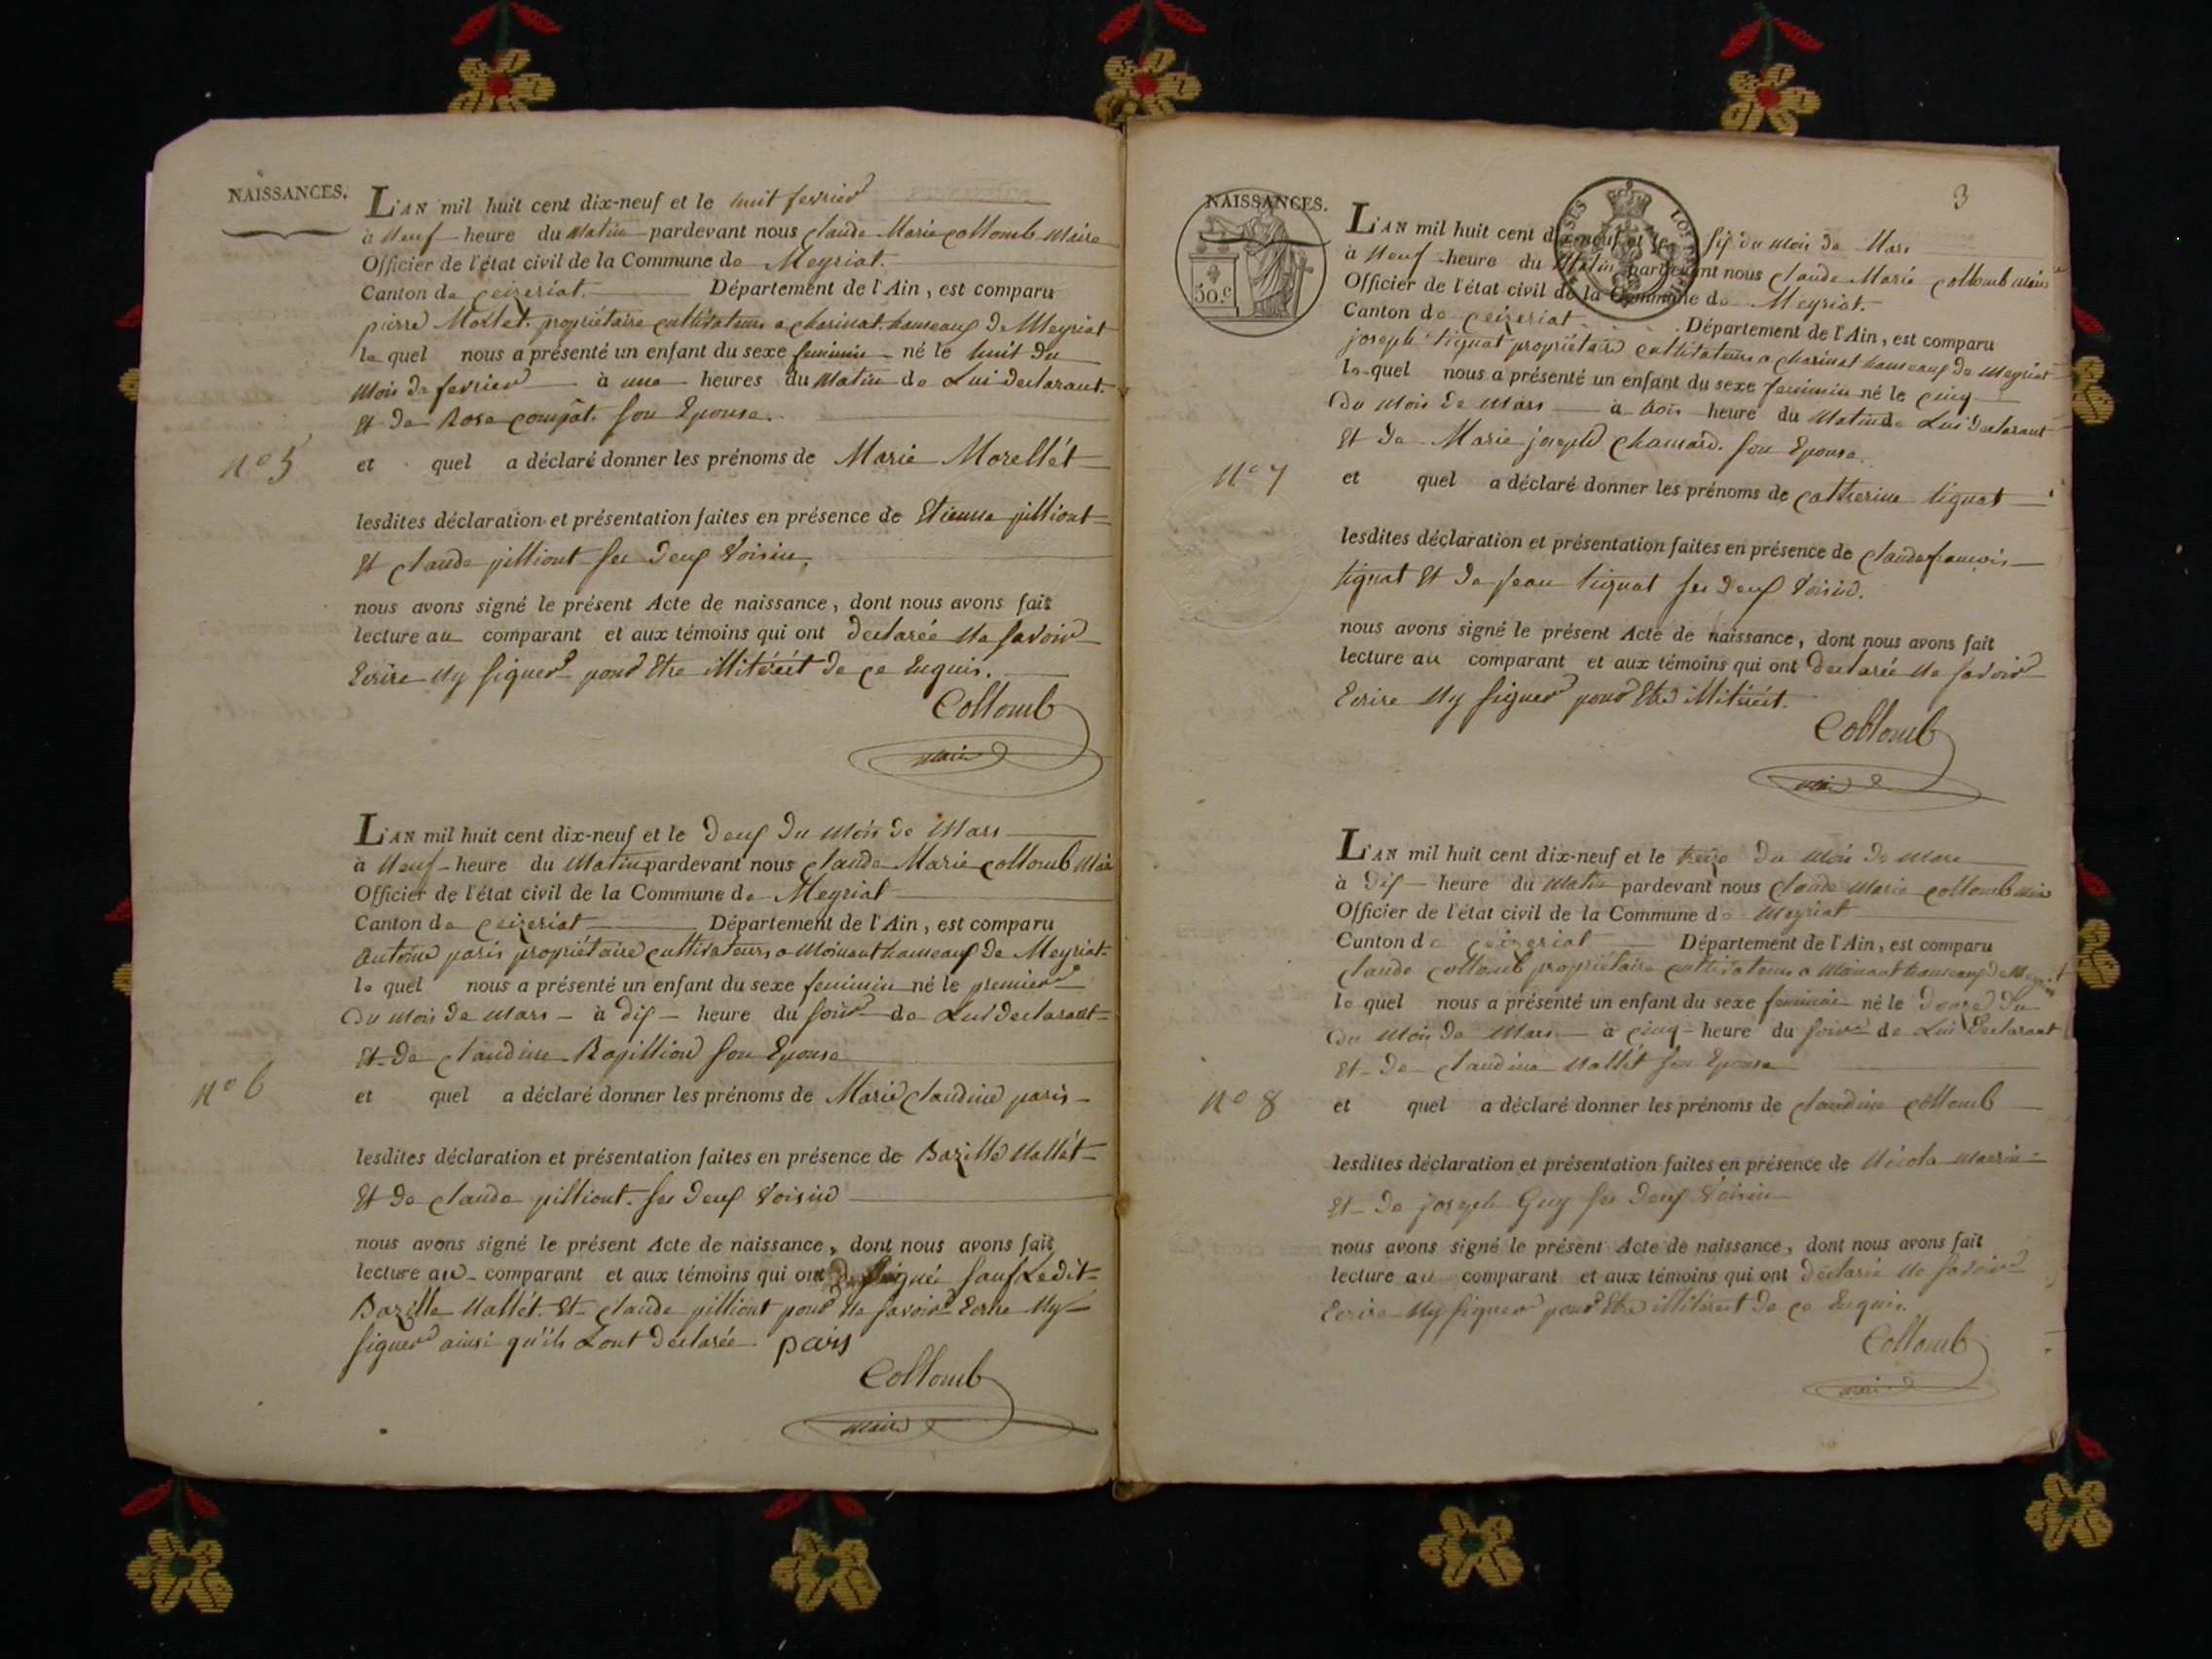 NAISSANCES.
L'AN mil huit cent dix-neuf et le huit fevrier
à neuf heure du matin pardevant nous claude Marie collomb Maire
Officier de l'état civil de la Commune de Meyriat.
Canton de ceizeriat. Département de l'Ain, est comparu
pierre propriétaire cultivateurs a charinat hameaux de Meyriat
le quel nous a présenté un enfant du sexe feminin né le huit du
Mois de fevrier à une heures du matin de Lui declarant.
Et de Rose son Epouse.
N° 5
et quel a déclaré donner les prénoms de Marie Morellét
lesdites déclaration et présentation faites en présence de Etienne pilliont
Et claude pilliont ses deux Voisin.
nous avons signé le présent Acte de naissance, dont nous avons fait
lecture au comparant et aux témoins qui ont declarée ne savoir
Ecrire ny signer pour Etre illitérét de ce Enquis.
Collomb
maire
L'AN mil huit cent dix-neuf et le deux du mois de Mars
à neuf heure du Matin pardevant nous claude Marie collomb Mair
Officier de l'état civil de la Commune de Meyriat
Canton de ceizeriat Département de l'Ain, est comparu
antoine paris propriétaire cultivateurs a Moinant hameaux de Meyriat.
le quel nous a présenté un enfant du sexe feminin né le premier
du mois de mars à dix heure du soir de Lui declarant
Et de claudine Ropillion son Epouse
N° 6
et quel a déclaré donner les prénoms de Marie claudine paris
lesdites déclaration et présentation faites en présence de Bazille Mallét
Et de claude pilliont. ses deux Voisin
nous avons signé le présent Acte de naissance, dont nous avons fait
lecture au comparant et aux témoins qui ont signé sauf Ledit
Bazille Mallét. Et claude pilliont pour ne savoir Ecrire ny
signer ainsi qu'ils Lont declarée. paris
Collomb
maire
3
NAISSANCES.
50 c
L'AN mil huit cent dix-neuf et le six du mois de Mars
à neuf heure du Matin pardevant nous claude Marie collomb maire
Officier de l'état civil de la Commune de Meyriat.
Canton de ceizeriat Département de l'Ain, est comparu
joseph tignat propriétaire cultivateurs a charinat hameaux de Meyriat
le quel nous a présenté un enfant du sexe feminin né le cinq
du mois de mars à trois heure du Matin de Lui declarant
Et de Marie joseph chamard. son Epouse.
N° 7
et quel a déclaré donner les prénoms de catherine tignat
lesdites déclaration et présentation faites en présence de claude francois
tignat Et de jean tignat ses deux Voisin.
nous avons signé le présent Acte de naissance, dont nous avons fait
lecture au comparant et aux témoins qui ont declarée ne savoir
Ecrire ny signer pour Etre illitérét.
Collomb
maire
L'AN mil huit cent dix-neuf et le treize du mois de mars
à dix heure du matin pardevant nous claude marie collomb mair
Officier de l'état civil de la Commune de Meyriat
Canton de ceizeriat Département de l'Ain, est comparu
claude collomb propriétaire cultivateurs a Moinant hameaux de Meyriat
le quel nous a présenté un enfant du sexe feminin né le douze du
du mois de Mars à cinq heure du soir de Lui declarant
Et de claudine Mallét son Epouse
N° 8
et quel a déclaré donner les prénoms de claudine collomb
lesdites déclaration et présentation faites en présence de Nicola
Et de joseph Guy ses deux Voisin
nous avons signé le présent Acte de naissance, dont nous avons fait
lecture au comparant et aux témoins qui ont declarée ne savoir
Ecrire ny signer pour Etre illitérét de ce Enquis.
Collomb
maire